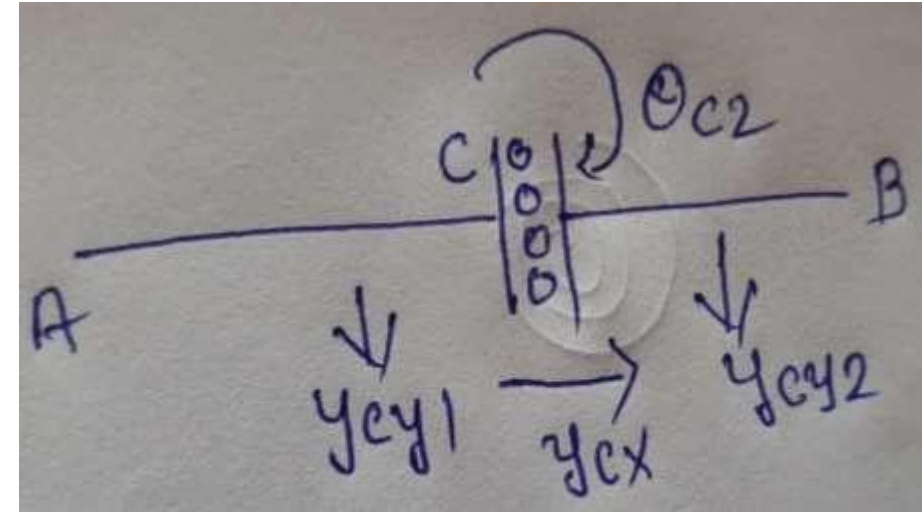 C
θc2
A
B
ycy1
ycx
ycy2